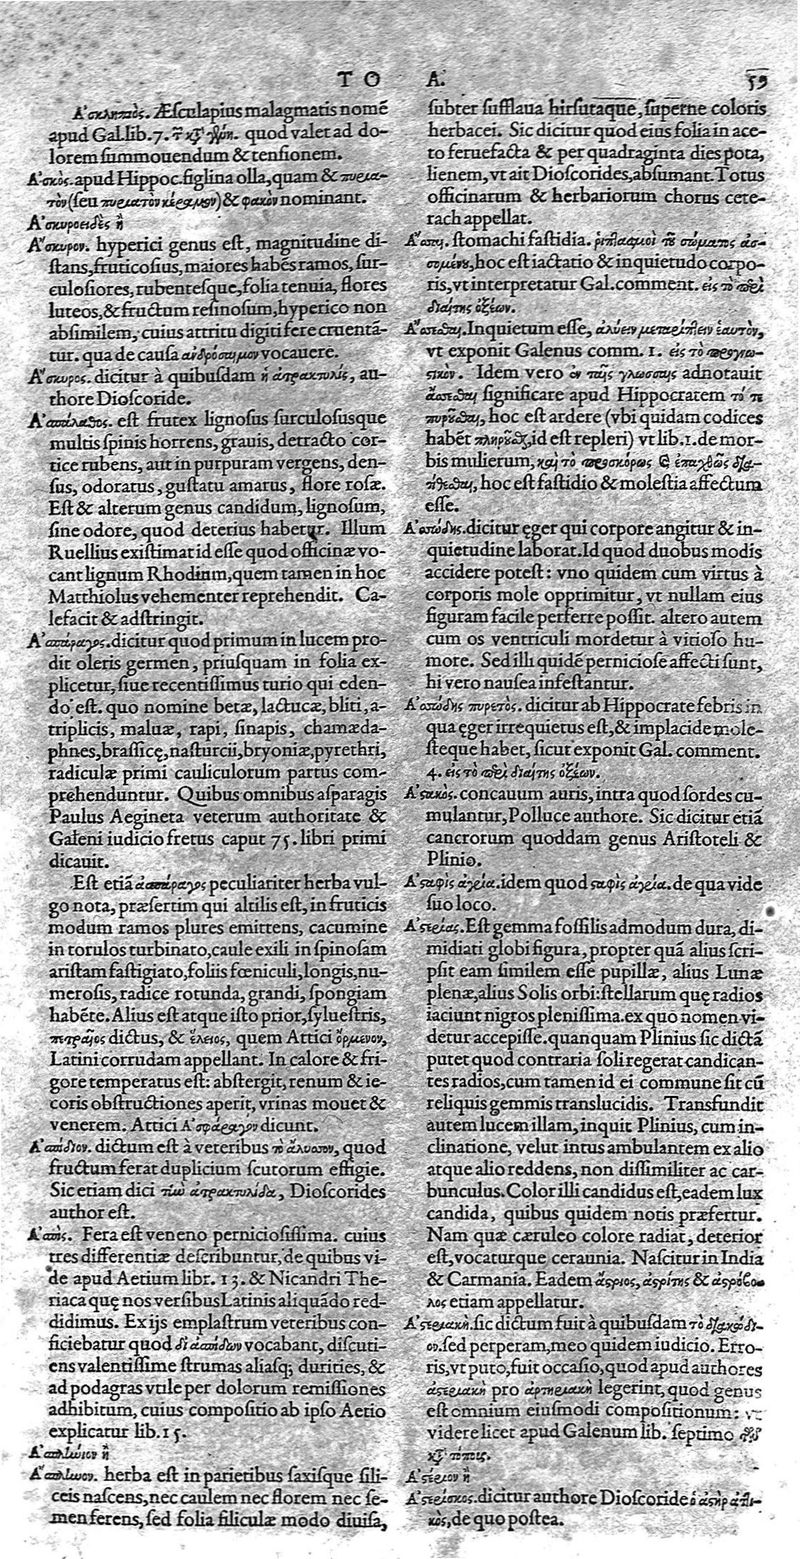 TO A. 59
Ἀσκληπιὸς. Æsculapius malagmatis nomē
apud Gal. lib. 7. quod valet ad do-
lorem summouendum & tensionem.
Ἀσκὸς. apud Hippoc. figlina olla, quam & πυρια-
τὸν (seu πυριατὸν κέραμον) & φακὸν nominant.
Ἀσκυροειδὲς ἢ
Ἄσκυρον. hyperici genus est, magnitudine di-
stans, fruticosius, maiores habēs ramos, sur-
culosiores, rubentesque, folia tenuia, flores
luteos, & fructum resinosum, hyperico non
absimilem, cuius attritu digiti fere cruentā-
tur. qua de causa ἀνδρόσαιμον vocauere.
Ἄσκυρος. dicitur à quibusdam ἡ ἀτρακτυλὶς, au-
thore Dioscoride.
Ἀσπάλαθος. est frutex lignosus surculosusque
multis spinis horrens, grauis, detracto cor-
tice rubens, aut in purpuram vergens, den-
sus, odoratus, gustatu amarus, flore rosæ.
Est & alterum genus candidum, lignosum,
sine odore, quod deterius habetur. Illum
Ruellius existimat id esse quod officinæ vo-
cant lignum Rhodium, quem tamen in hoc
Matthiolus vehementer reprehendit. Ca-
lefacit & adstringit.
Ἀσπάραγος. dicitur quod primum in lucem pro-
dit oleris germen, priusquam in folia ex-
plicetur, siue recentissimus turio qui eden-
do est. quo nomine betæ, lactucæ, bliti, a-
triplicis, maluæ, rapi, sinapis, chamæda-
phnes, brassicę, nasturcii, bryoniæ, pyrethri,
radiculæ primi cauliculorum partus com-
prehenduntur. Quibus omnibus asparagis
Paulus Aegineta veterum authoritate &
Galeni iudicio fretus caput 75. libri primi
dicauit.
Est etiā ἀσπάραγος peculiariter herba vul-
go nota, præsertim qui altilis est, in fruticis
modum ramos plures emittens, cacumine
in torulos turbinato, caule exili in spinosam
aristam fastigiato, foliis fœniculi, longis, nu-
merosis, radice rotunda, grandi, spongiam
habēte. Alius est atque isto prior, syluestris,
πετραῖος dictus, & ἕλειος, quem Attici ὄρμενον,
Latini corrudam appellant. In calore & fri-
gore temperatus est: abstergit, renum & ie-
coris obstructiones aperit, vrinas mouet &
venerem. Attici Ἀσφάραγον dicunt.
Ἀσπίδιον. dictum est à veteribus τὸ ἄλυσσον, quod
fructum ferat duplicium scutorum effigie.
Sic etiam dici τὴν ἀτρακτυλίδα, Dioscorides
author est.
Ἀσπὶς. Fera est veneno perniciosissima. cuius
tres differentiæ describuntur, de quibus vi-
de apud Aetium libr. 13. & Nicandri The-
riaca quę nos versibus Latinis aliquādo red-
didimus. Ex ijs emplastrum veteribus con-
ficiebatur quod δι ἀσπίδων vocabant, discuti-
ens valentissime strumas aliasq; durities, &
ad podagras vtile per dolorum remissiones
adhibitum, cuius compositio ab ipso Aetio
explicatur lib. 15.
Ἀσπλήνιον ἢ
Ἄσπληνον. herba est in parietibus saxisque sili-
ceis nascens, nec caulem nec florem nec se-
men ferens, sed folia filiculæ modo diuisa,
subter sufflaua hirsutaque, superne coloris
herbacei. Sic dicitur quod eius folia in ace-
to feruefacta & per quadraginta dies pota,
lienem, vt ait Dioscorides, absumant. Totus
officinarum & herbariorum chorus cete-
rach appellat.
Ἄση. stomachi fastidia. ῥιπτασμοὶ τοῦ σώματος ἀσ-
σωμένου, hoc est iactatio & inquietudo corpo-
ris, vt interpretatur Gal. comment. εἰς τὸ περὶ
διαίτης ὀξέων.
Ἄσσεσθαι. Inquietum esse, ἀλύειν μεταρίπτειν ἑαυτὸν,
vt exponit Galenus comm. 1. εἰς τὸ προγνω-
στικὸν. Idem vero ἐν ταῖς γλώσσαις adnotauit
ἄσσεσθαι significare apud Hippocratem τό τε
πυροῦσθαι, hoc est ardere (vbi quidam codices
habēt πληροῦσθαι, id est repleri) vt lib. 1. de mor-
bis mulierum, καὶ τὸ προσκόρως καὶ ἐπαχθῶς δια-
τίθεσθαι, hoc est fastidio & molestia affectum
esse.
Ἀσσώδης. dicitur ęger qui corpore angitur & in-
quietudine laborat. Id quod duobus modis
accidere potest: vno quidem cum virtus à
corporis mole opprimitur, vt nullam eius
figuram facile perferre possit. altero autem
cum os ventriculi mordetur à vitioso hu-
more. Sed illi quidē perniciose affecti sunt,
hi vero nausea infestantur.
Ἀσσώδης πυρετὸς. dicitur ab Hippocrate febris in
qua ęger irrequietus est, & implacide mole-
steque habet, sicut exponit Gal. comment.
4. εἰς τὸ περὶ διαίτης ὀξέων.
Ἀστακὸς. concauum auris, intra quod sordes cu-
mulantur, Polluce authore. Sic dicitur etiā
cancrorum quoddam genus Aristoteli &
Plinio.
Ἀσταφὶς ἀγρία. idem quod σταφὶς ἀγρία. de qua vide
suo loco.
Ἀστερίας. Est gemma fossilis admodum dura, di-
midiati globi figura, propter quā alius scri-
psit eam similem esse pupillæ, alius Lunæ
plenæ, alius Solis orbi: stellarum quę radios
iaciunt nigros plenissima. ex quo nomen vi-
detur accepisse. quanquam Plinius sic dictā
putet quod contraria soli regerat candican-
tes radios, cum tamen id ei commune sit cū
reliquis gemmis translucidis. Transfundit
autem lucem illam, inquit Plinius, cum in-
clinatione, velut intus ambulantem ex alio
atque alio reddens, non dissimiliter ac car-
bunculus. Color illi candidus est, eadem lux
candida, quibus quidem notis præfertur.
Nam quæ cæruleo colore radiat, deterior
est, vocaturque ceraunia. Nascitur in India
& Carmania. Eadem ἄστριος, ἀστρίτης & ἀστρόβο-
λος etiam appellatur.
Ἀστεριακὴ. sic dictum fuit à quibusdam τὸ
sed perperam, meo quidem iudicio. Erro-
ris, vt puto, fuit occasio, quod apud authores
ἀστεριακὴ pro ἀρτηριακὴ legerint, quod genus
est omnium eiusmodi compositionum: vt
videre licet apud Galenum lib. septimo τῶν
κατὰ τόπους.
Ἀστέριον ἢ
Ἀστερίσκος. dicitur authore Dioscoride ὁ ἀστὴρ ἀττι-
κὸς, de quo postea.